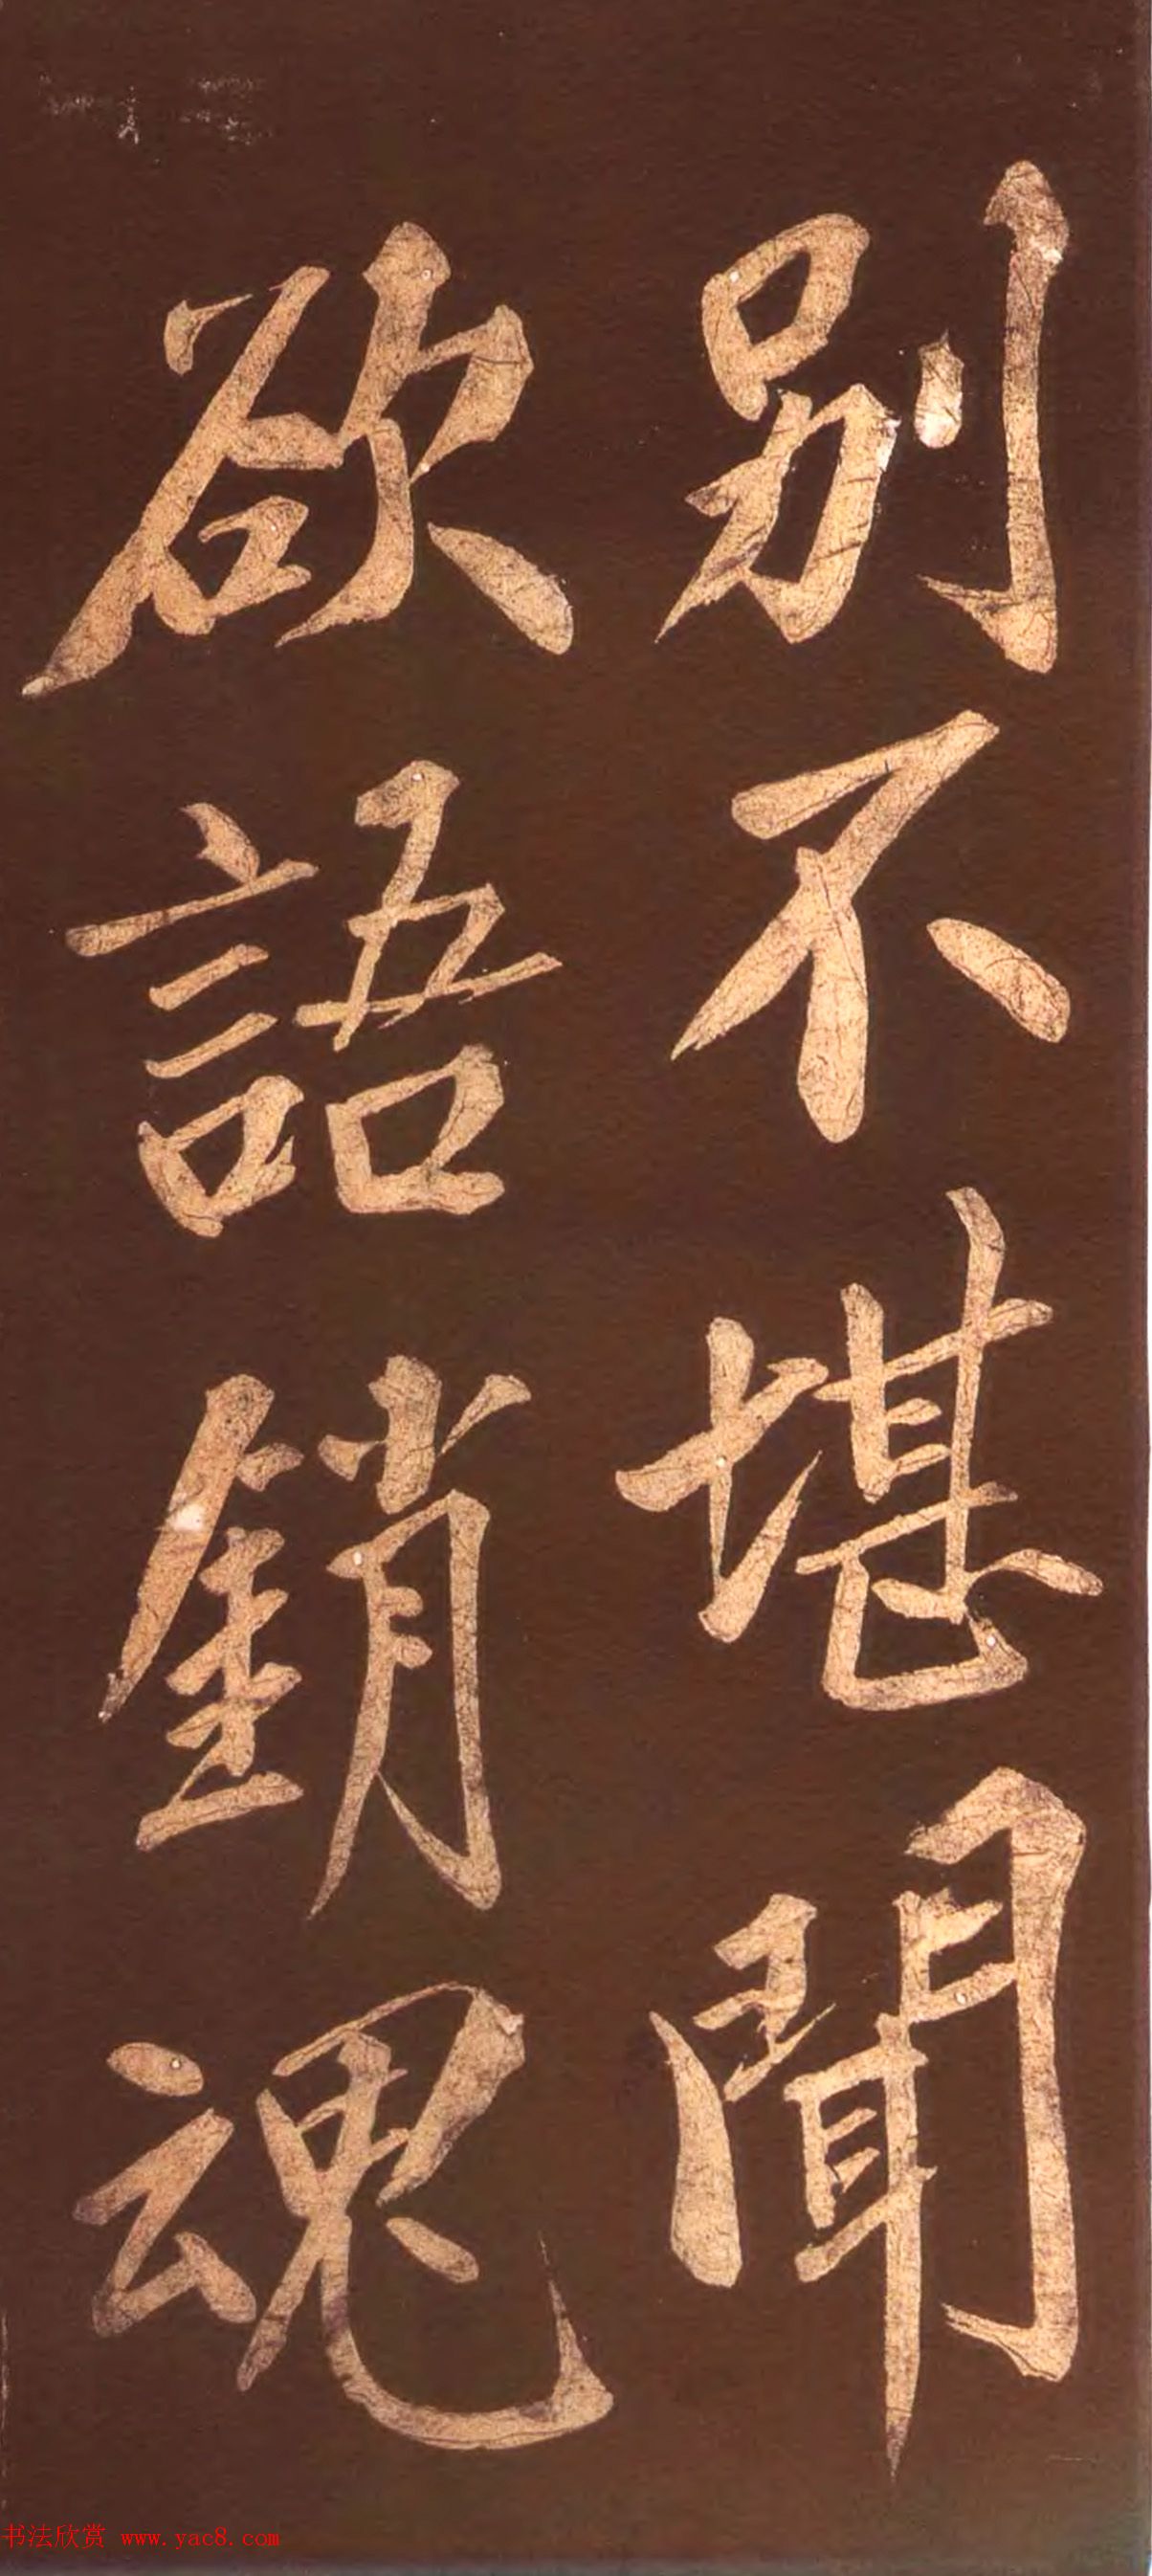 别不堪聞
欲語銷魂
书法欣赏 www.yac8.com